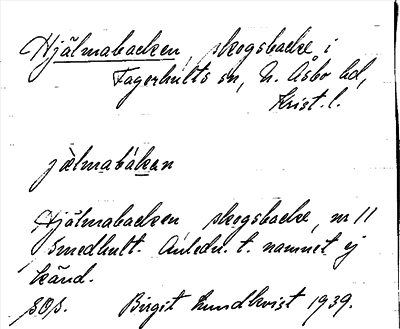 Hjälmabacken, skogsbacke i
Fagerhults sn, N. Åsbo hd,
Krist. l.
jälmabáken
Hjälmabacken, skogsbacke, nr 11
Smedhult. Anledn. t. namnet ej
känd.
Birgit Lundkvist 1939.